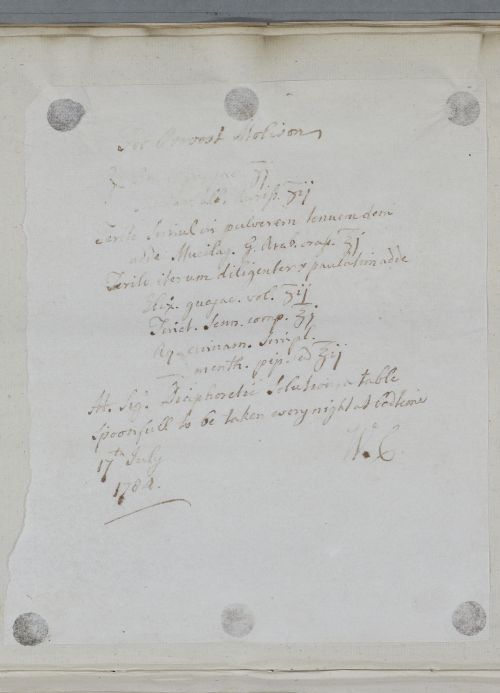 For Provost Molison
℞ guajac. ʒj
alb. puriss. ʒij
Terite simul in pulverem tenuem dein
adde Mucilag. G. Arab. crass. ʒj
Terite iterum diligenter & paulatim adde
Elix. guajac. vol. ʒij
Tinct. Senn. comp. ℥j
Aq. cinnam. simpl.
menth. pip. sd ℥ij
M. Sig. Diaphoretic Solution a table
spoonfull to be taken every night at bedtime
17th July
1784.
W. C.